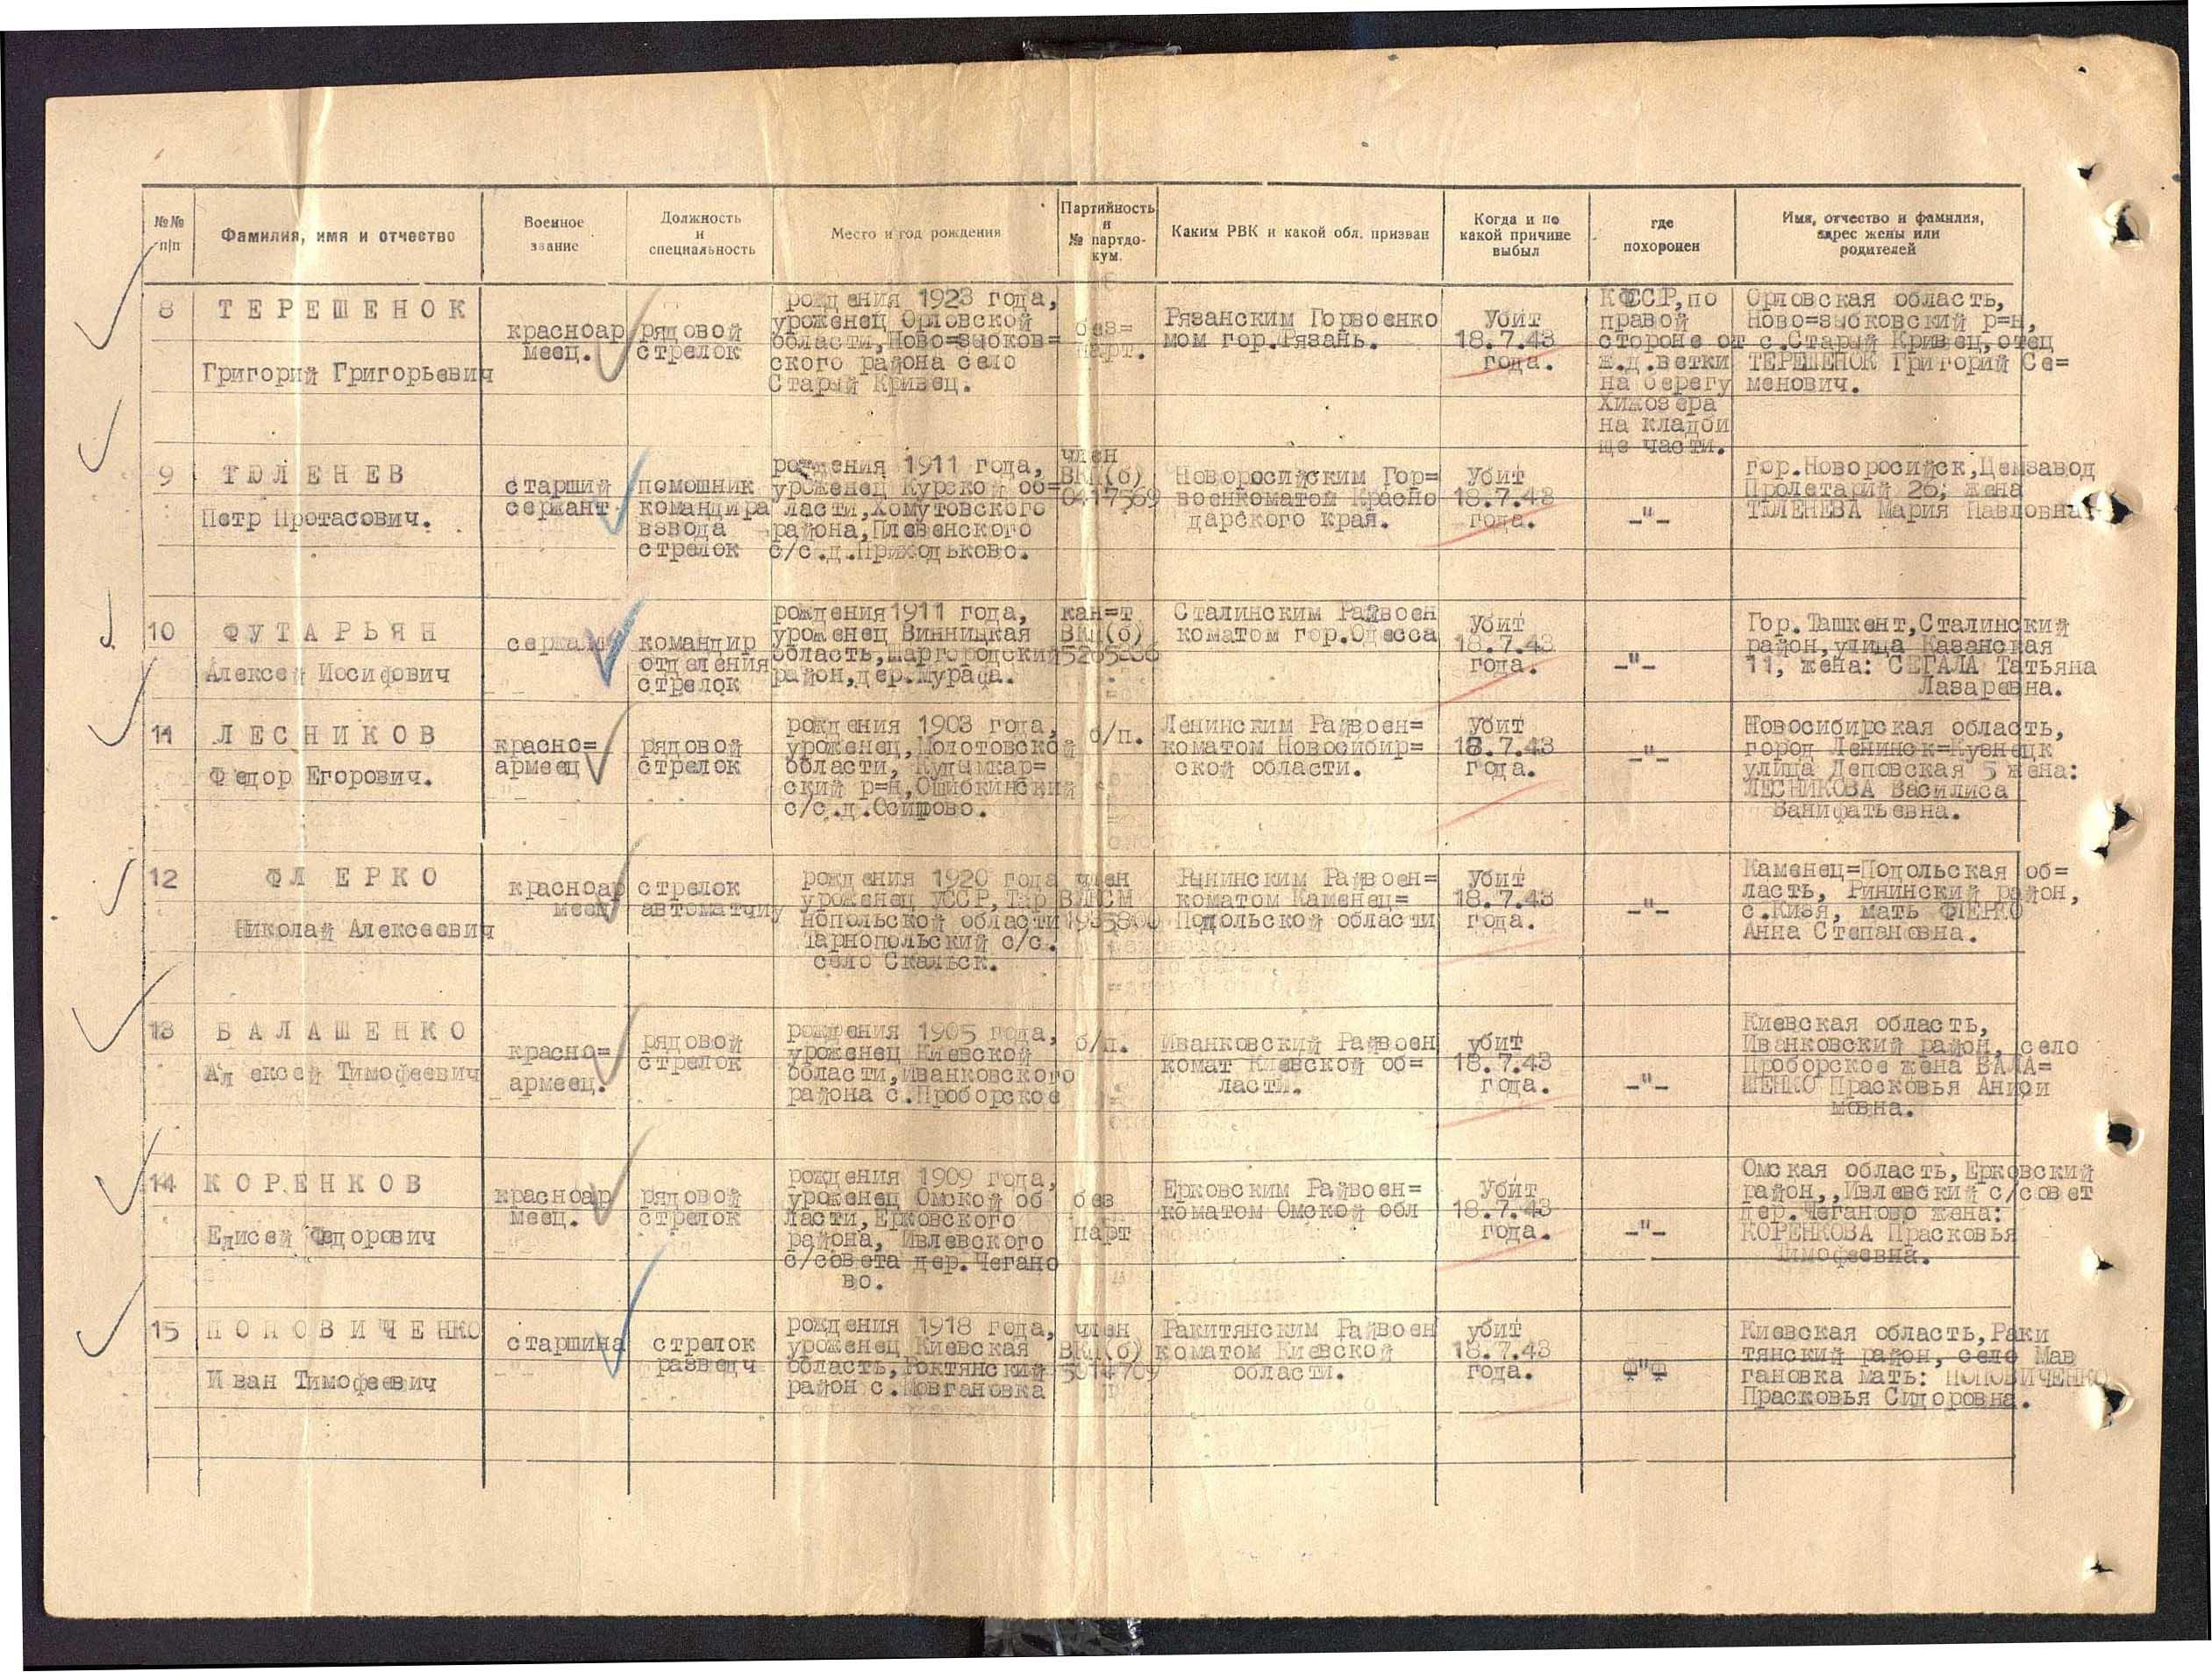 №№ п|п
Фамилия, имя и отчество
Военное звание
Должность и специальность
Место и год рождения
Партийность и № партдо-кум.
Каким РВК и какой обл. призван
Когда и по какой причине выбыл
где похоронен
Имя, отчество и фамилия, адрес жены или родителей
8
ТЕРЕШЕНОК
Григорий Григорьевич
красноар
меец.
рядовой
стрелок
рождения 1923 года,
уроженец Орловской
области, Ново=зыбков=
ского района село
Старый Кривец.
без=
парт.
Рязанским Горвоенко
мом гор.Рязань.
Убит
18.7.43
года.
КФССР,по
правой
стороне от
ж.д.ветки
на берегу
Хижозера
на кладби
ще части.
Орловская область,
Ново=зыбковский р=н,
с.Старый Кривец,отец
ТЕРЕШЕНОК Григорий Се=
менович.
9
ТЮЛЕНЕВ
Петр Протасович.
старший
сержант
помошник
командира
взвода
стрелок
рождения 1911 года,
уроженец Курской об=
ласти,Хомутовского
района,Плевенского
с/с.д.Приходьково.
член
ВКП(б)
0417569
Новоросийским Гор=
военкоматом Красно
дарского края.
Убит
18.7.43
года.
-"-
гор.Новоросийск,Цемзавод
Пролетарий 26; жена
ТЮЛЕНЕВА Мария Павловна
10
ФУТАРЬЯН
Алексей Иосифович
сержант
командир
отделения
стрелок
рождения1911 года,
уроженец Винницкая
область,Шаргородский
район,дер.Мурафа.
кан=т
ВКП(б)
Сталинским Райвоен
коматом гор.Одесса
Убит
18.7.43
года.
-"-
Гор.Ташкент,Сталинский
район,улица Казанская
11, жена: СЕГАЛА Татьяна
Лазаревна.
11
ЛЕСНИКОВ
Федор Егорович.
красно=
армеец
рядовой
стрелок
рождения 1903 года,
уроженец,Молотовской
области, Кудымкар=
ский р=н,Ошибкинский
с/с.д.Осипово.
б/п.
Ленинским Райвоен=
коматом Новосибир=
ской области.
Убит
18.7.43
года.
-"-
Новосибирская область,
город Ленинск=Кузнецк
улица Деповская 5 жена:
ЛЕСНИКОВА Василиса
Ванифатьевна.
12
ФЛЕРКО
Николай Алексеевич
красноар
меец
стрелок
автоматчик
рождения 1920 года
уроженец УССР, Тар
нопольской области
Тарнопольский с/с.
село Скальск.
член
ВЛКСМ
Рининским Райвоен=
коматом Каменец=
Подольской области
Убит
18.7.43
года.
-"-
Каменец=Подольская об=
ласть, Рининский район,
с.Кизя, мать ФЛЕРКО
Анна Степановна.
13
БАЛАШЕНКО
Алексей Тимофеевич
красно=
армеец.
рядовой
стрелок
рождения 1905 года,
уроженец Киевской
области,Иванковского
района с.Проборское
б/п.
Иванковский Райвоен
комат Киевской об=
ласти.
убит
18.7.43
года.
-"-
Киевская область,
Иванковский район, село
Проборское жена БАЛА=
ШЕНКО Прасковья Аниси
мовна.
14
КОРЕНКОВ
Елисей Федорович
красноар
меец.
рядовой
стрелок
рождения 1909 года,
уроженец Омской об
ласти,Ерковского
района, Ивлевского
с/совета дер.Чегано
во.
без
парт
Ерковским Райвоен=
коматом Омской обл
Убит
18.7.43
года.
-"-
Омская область,Ерковский
район,,Ивлевский с/совет
дер.Чеганово жена:
КОРЕНКОВА Прасковья
Тимофеевна.
15
ПОПОВИЧЕНКО
Иван Тимофеевич
старшина
стрелок
разведч
рождения 1918 года,
уроженец Киевская
область,Роктянский
район с.Мовгановка
член
ВКП(б)
5014709
Ракитянским Райвоен
коматом Киевской
области.
убит
18.7.43
года.
Киевская область,Раки
тянский район, село Мав
гановка мать: ПОПОВИЧЕНКО
Прасковья Сидоровна.